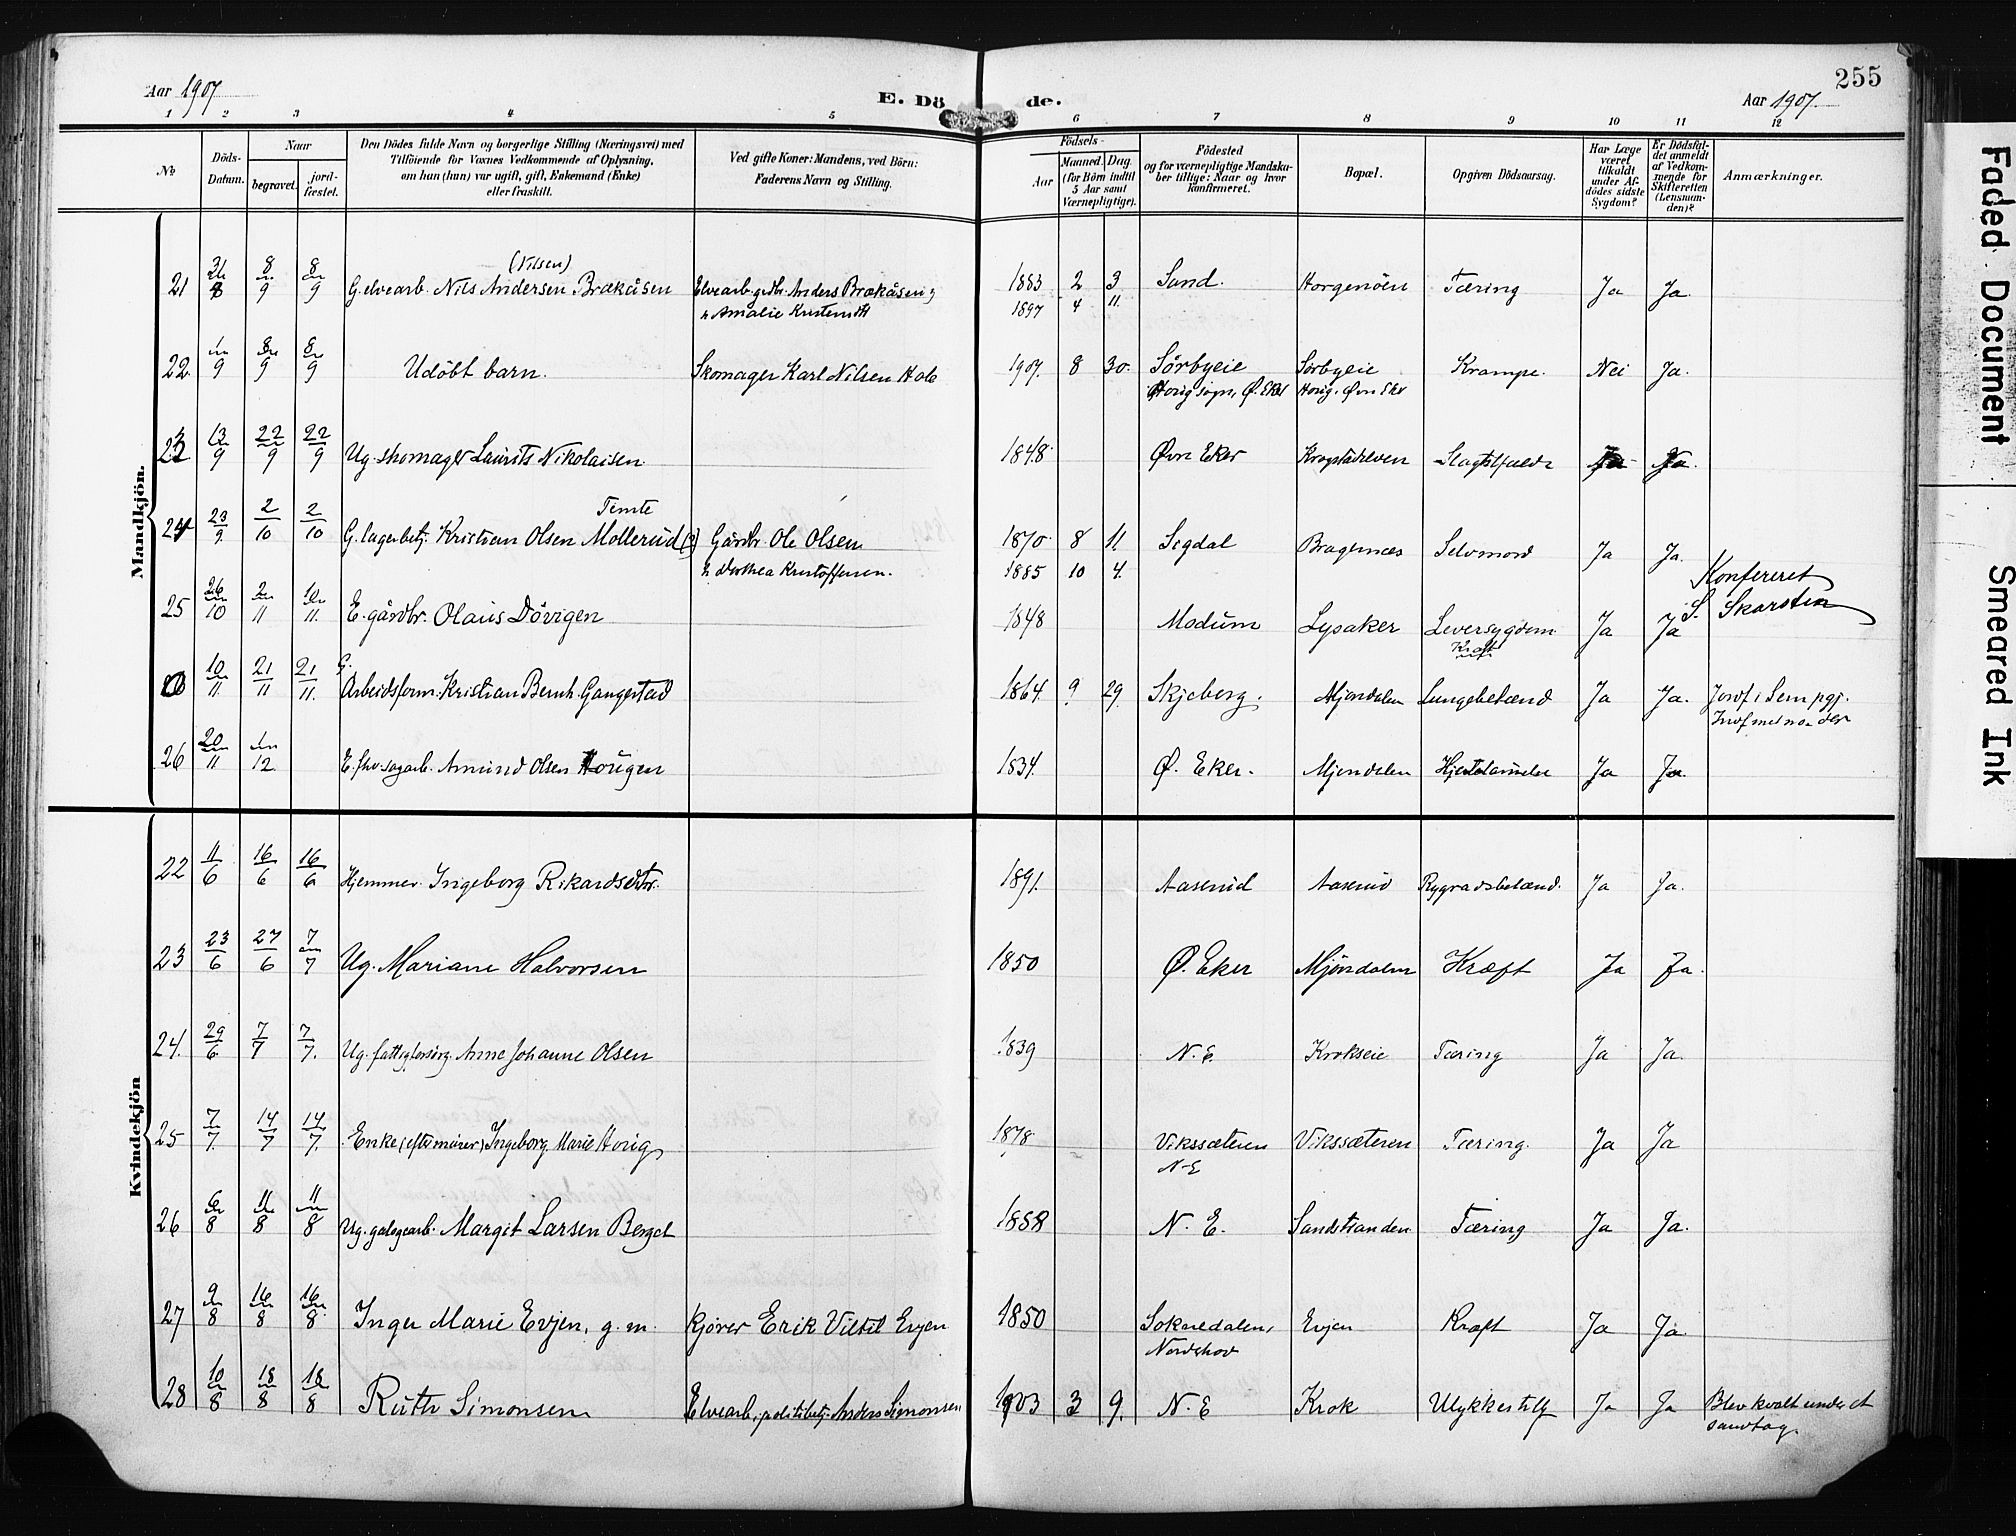 255
Aar 1907
E. Döde.
Aar 1907.
1 2 3 4 5 6 7 8 9 10 11 12
No
Döds-Datum.
Naar
begravet.
jord-fæstet.
Den Dödes fulde Navn og borgerlige Stilling (Næringsvei) med
Tilföiende for Voxnes Vedkommende af Oplysning,
om han (hun) var ugift, gift, Enkemand (Enke)
eller fraskilt.
Ved gifte Koner: Mandens, ved Börn:
Faderens Navn og Stilling.
Födsels-
Aar
Maaned. Dag.
(for Börn indtil
5 Aar samt
Værnepligtige).
Födested
og for værnepligtige Mandska-
ber tillige: Naar og hvor
konfirmeret.
Bopæl.
Opgiven Dödsaarsag.
Har Læge
været
tilkaldt
under Af-
dödes sidste
Sygdom?
Er Dödsfal-
det anmeldt
af Vedkom-
mende for
Skifteretten
(Lensman-
den)?
Anmærkninger.
Mandkjön.
(Nilsen)
21 31/8 8/9 8/9 G. elvearb. Nils Andersen Brækåsen Elvearb. grdbr. Anders Brækåsen 1883 2 3 Sand. Horgenöen Tæring Ja Ja.
h Amalie 1897 4 11
22. 1/9 8/9 8/9 Udöbt barn. Skomager Karl Nilsen Hole 1907. 8 30. Sørbyeie Sørbyeie Krampe. Nei Ja.
Horig sogn, Ø. Eker Horig. Øvre Eker
23 13/9 22/9 22/9 Ug. skomager Laurits Nikolaisen 1848 Øvre Eker Krogstadelven Slagtilfælde Ja.
Temte
24 23/9 2/10 2/10 G. lagerbetj. Kristian Olsen Mollerud (?) Gårdbr. Ole Olsen 1870 8 11 Sigdal Bragernæs Selvmord Ja Ja.
h. Dorthea Kristoffersen. 1885 10 4.
Konfereret
S. Skarstein
25 26/10 2/11 10/11. E. gårdbr. Olaus Dövigen 1848 Modum Lysaker Leversygdom Ja Ja
Kræft
10/11 21/11 21/11. G. Arbeidsform. Kristian Bernh. Gangestad 1864. 9 29. Skjeberg. Mjøndalen Lungebetænd Ja Ja. Jordf. i Sem pgj.
26 20/11 1/12. E. fhv. sagarb. Amund Olsen Hougen 1834. Ø. Eker. Mjøndalen Hjertelammelse Ja Ja.
Kvindekjön
22 11/6 16/6 16/6 Hjemmev. Ingeborg Rikardsdtr. 1891. Aaserud Aaserud Rygradsbetænd. Ja Ja.
23 23/6 27/6 7/7 Ug. Mariane Halvorsen 1850 Ø. Eker Mjöndalen Kræft Ja Ja.
24. 29/6. 7/7 7/7. Ug. fattigforsörg. Anne Johanne Olsen 1839 N. E. Krokseie Tæring Ja Ja.
25 7/7. 14/7 14/7. Enke (efter murer) Ingeborg Marie Horig 1878 Vikssæteren Vikssæteren Tæring. Ja Ja
N-E
26 6/8 11/8 11/8 Ug. galogearb. Margit Larsen Berget 1858 N. E. Sandstranden Tæring Ja Ja.
27 9/8 16/8 16/8. Inger Marie Evjen, g. m. Kjörer Erik Viktil Evjen 1850 Soknedalen, Evjen Kræft Ja Ja.
Norderhov
28 10/8 18/8 18/8 Ruth Simonsen Elvearb., politibetj. Anders Simonsen 1903 3 9. N. E Krok Ulykkestilf Ja Ja Blev kvalt under et
sandtag.
Faded Document
Smeared Ink